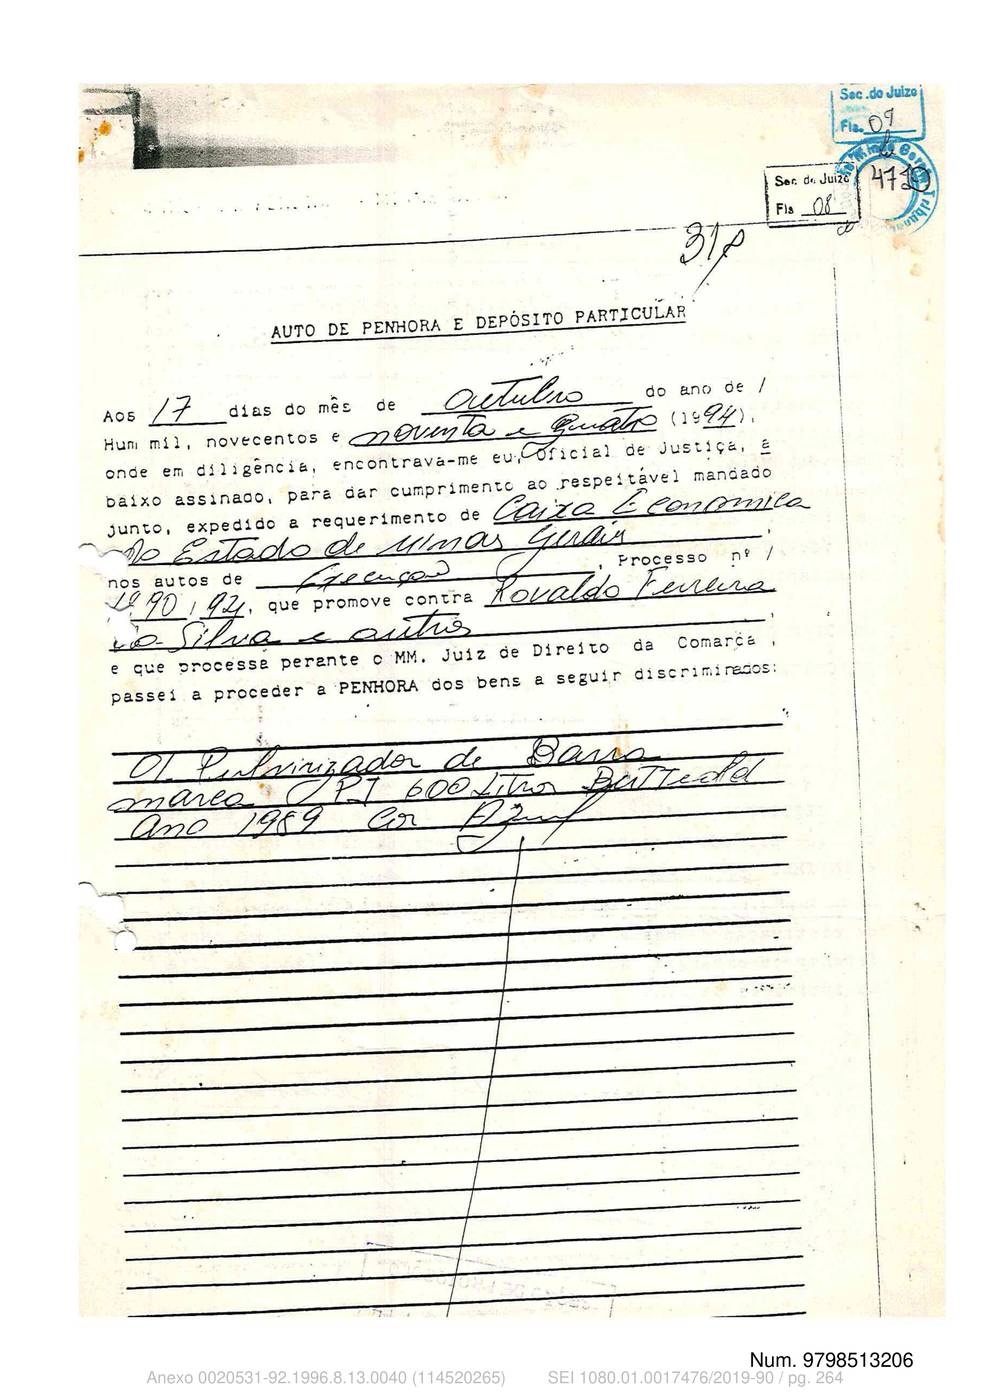 Sec. do Juizo
Fls. 09
Sec. do Juizo
Fls 08
AUTO DE PENHORA E DEPÓSITO PARTICULAR
Aos 17 dias do mês de outubro do ano de /
Hum mil, novecentos e noventa e quatro (1994),
onde em diligência, encontrava-me eu, Oficial de Justiça, a
baixo assinado, para dar cumprimento ao respeitável mandado
junto, expedido a requerimento de Caixa Economica
do Estado de Minas Gerais,
nos autos de Execução, Processo nº /
90/94, que promove contra Rovaldo Ferreira
da Silva e outros,
e que processa perante o MM. Juiz de Direito da Comarca,
passei a proceder a PENHORA dos bens a seguir discriminados:
01 Pulvirizador de Barra
marca PJ 600 Litros
Ano 1989 Cor Azul
Num. 9798513206
Anexo 0020531-92.1996.8.13.0040 (114520265) SEI 1080.01.0017476/2019-90 / pg. 264